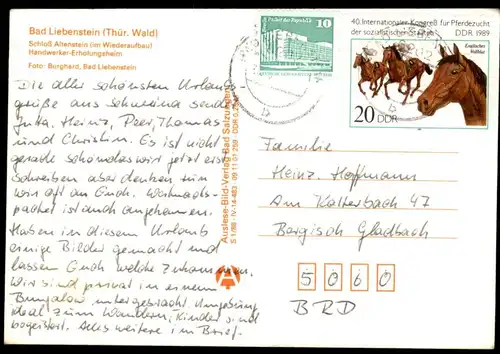 Bad Liebenstein (Thür. Wald)
Schloß Altenstein (im Wiederaufbau)
Handwerker-Erholungsheim
Foto: Burghard, Bad Liebenstein
Die aller schönsten Urlaubs
grüße aus Schweina senden
Jutta, Heinz, Peer, Thomas
und Christin. Es ist nicht
gerade schön das wir jetzt erst
schreiben aber denken tun
wir oft an Euch. Weihnachts-
paket ist auch angekommen.
Haben in diesem Urlaub
einige Bilder gemacht und
lassen Euch welche zukommen.
Wir sind privat in einem
Bungalow untergebracht. Umgebung
ideal zum Wandern, Kinder sind
begeistert. Alles weitere im Brief.
Auslese-Bild-Verlag Bad Salzungen
S 1/88 IV-14-483 09 11 01 259 DDR
10
PALAST DER REPUBLIK
DDR
40. Internationaler Kongreß für Pferdezucht
der sozialistischen Staaten
DDR 1989
Englisches
Vollblut
20 DDR
Familie
Heinz Hoffmann
Am Kalterbach 47
Bergisch Gladbach
5060
BRD